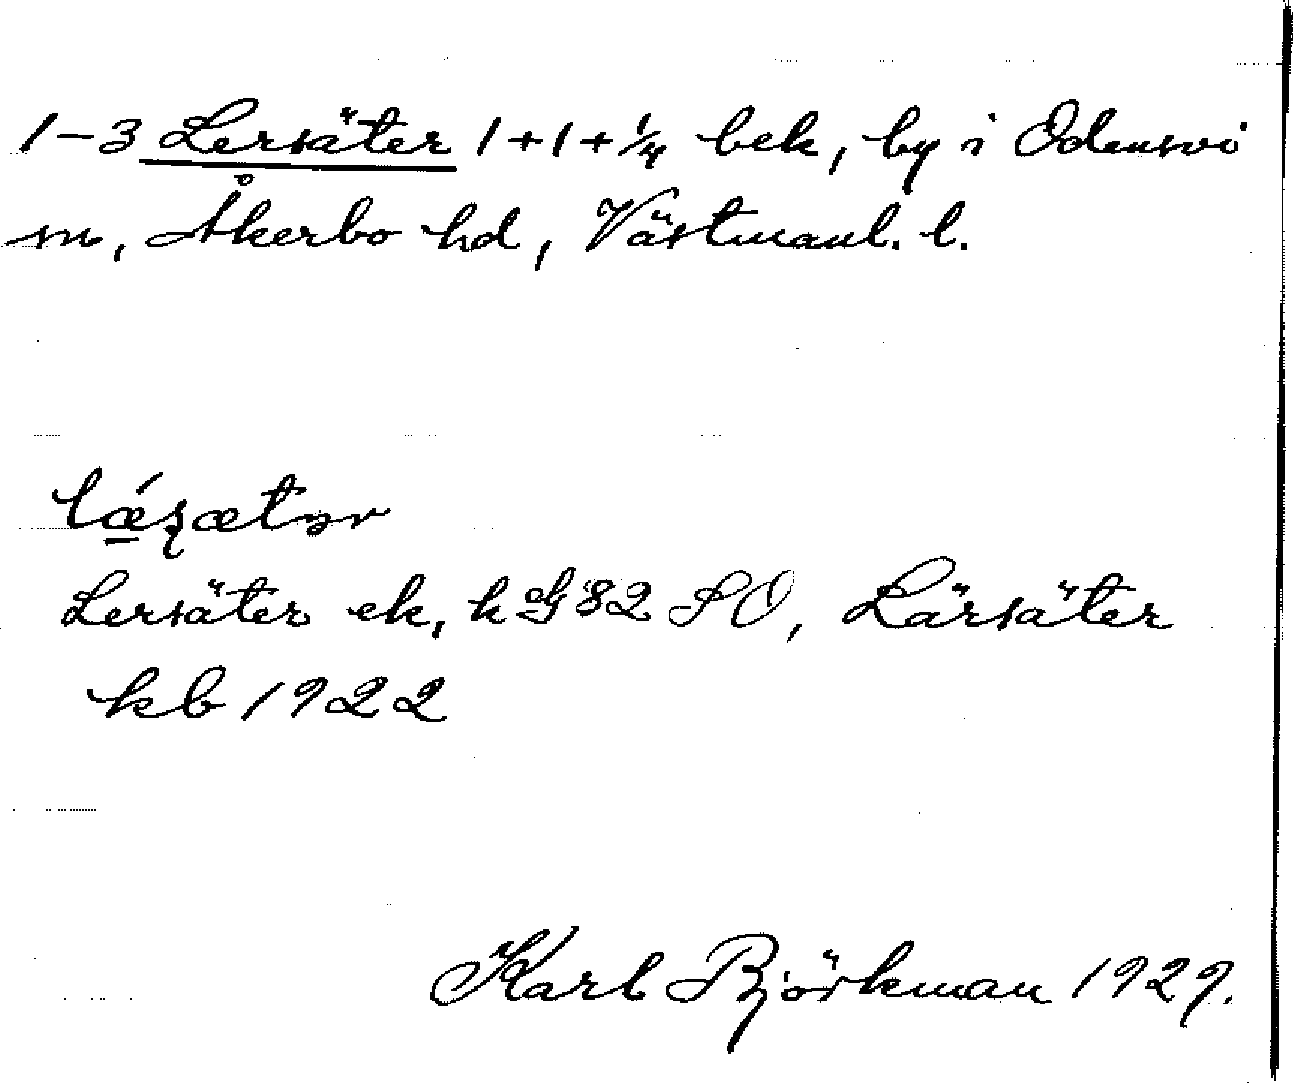 1-3 Lersäter 1+1+¼ bek, by i Odensvi
sn, Åkerbo hd, Västmanl. l.
lǽʂætər
Lersäter ek, k G 82 SO, Lärsäter
kb 1922
Karl Björkman 1929.